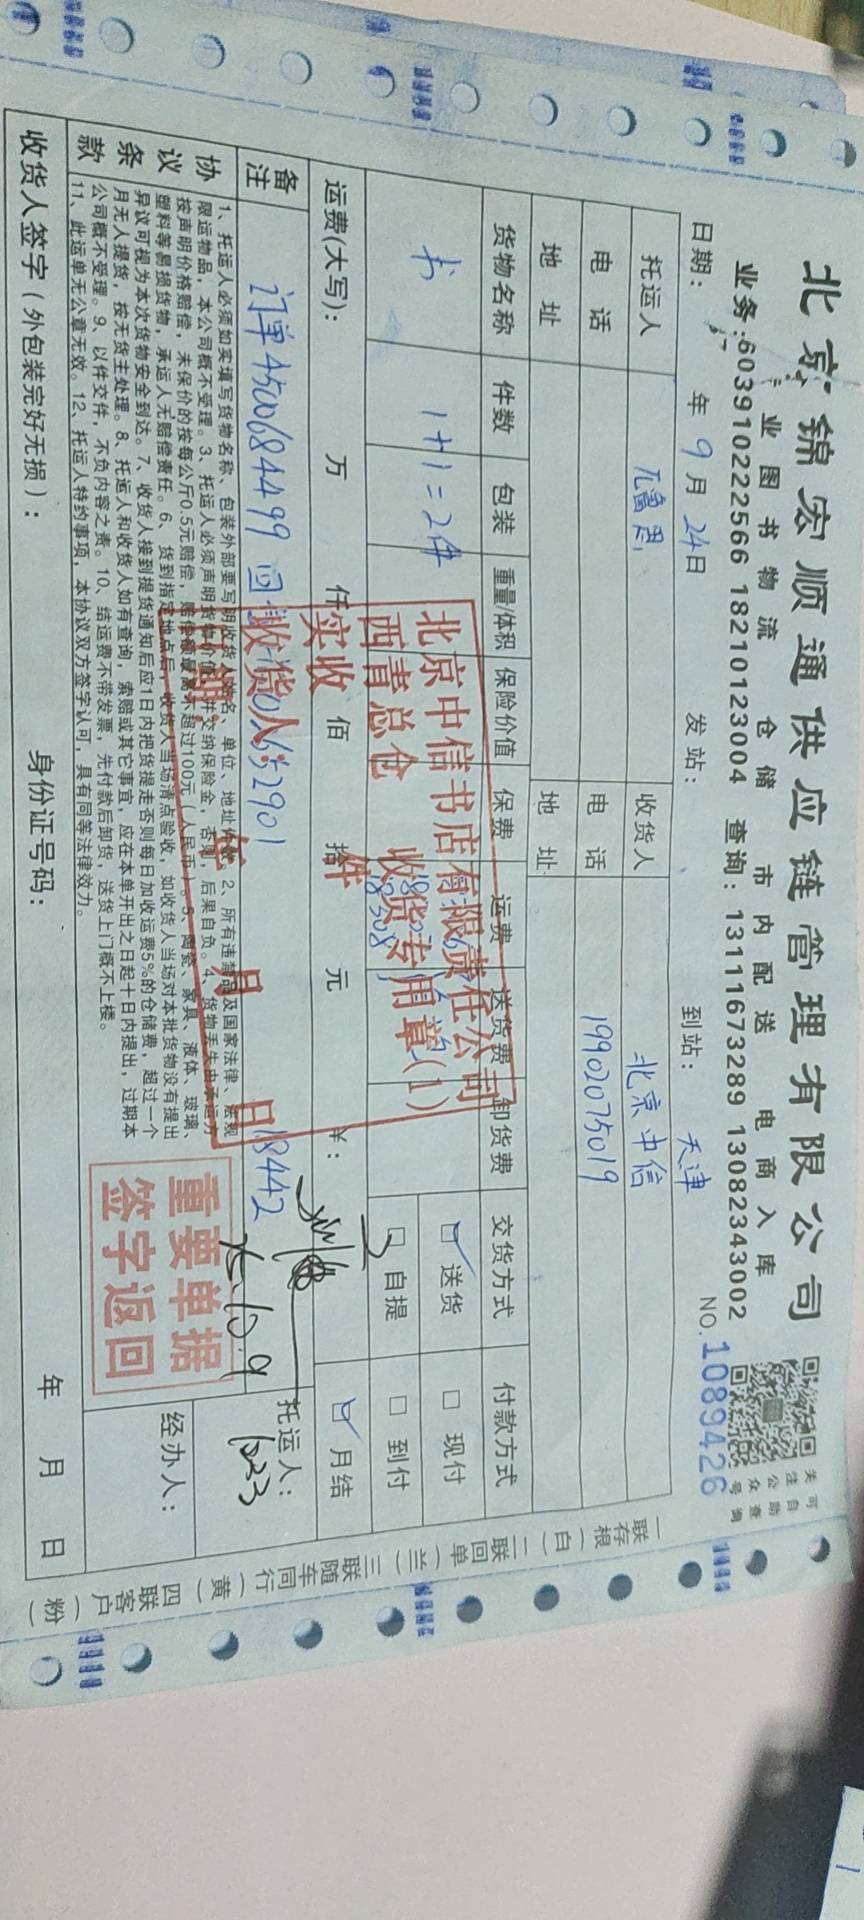 北京锦宏顺通供应链管理有限公司
专业图书物流 仓储 市内配送 电商入库
业务:603910222566 18210123004 查询:13111673289 13082343002
关注公众号
可自助查询
日期: 年 9 月 24 日 发站: 到站: 天津 NO.1089426
托运人 收货人 北京中信
电话 电话 19902075019
地址 地址
货物名称 件数 包装 重量/体积 保险价值 保费 运费 送货费 卸货费 交货方式 付款方式
书 1+1=2件 送货 自提 现付 到付 月结
运费(大写): 万 仟 佰 拾 元 ¥:
备注 订单4500684499 18442
协议条款
1、托运人必须如实填写货物名称、包装外部要写明收货人姓名、单位、地址 2、所有违禁品及国家法律、法规
限运物品，本公司概不受理。3、托运人必须声明货物价值，并交纳保险金，否则，后果自负。4、货物丢失由承运方
按声明价格赔偿，未保价的按每公斤0.5元赔偿，赔偿额最高不超过100元（人民币）。5、陶瓷、家具、液体、玻璃、
塑料等易损货物，承运人无赔偿责任。6、货到指定地点后，收货人当场清点验收，如收货人当场对本批货物没有提出
异议可视为本次货物安全到达。7、收货人接到提货通知后应1日内把货提走否则每日加收运费5%的仓储费，超过一个
月无人提货，按无货主处理。8、托运人和收货人如有查询，索赔或其它事宜，应在本单开出之日起十日内提出，过期本
公司概不受理。9、以件交件，不负内容之责。10、结运费不带发票，先付款后卸货，送货上门概不上楼。
11、此运单无公章无效。12、托运人特约事项，本协议双方签字认可，具有同等法律效力。
托运人:
1023
经办人:
收货人签字(外包装完好无损): 身份证号码: 年 月 日
北京中信书店有限责任公司
西青总仓 收货专用章(1)
实收 件
收货人:
日期: 年 月 日
重要单据
签字返回
一联存根(白) 二联回单(兰) 三联随车同行(黄) 四联客户(粉)